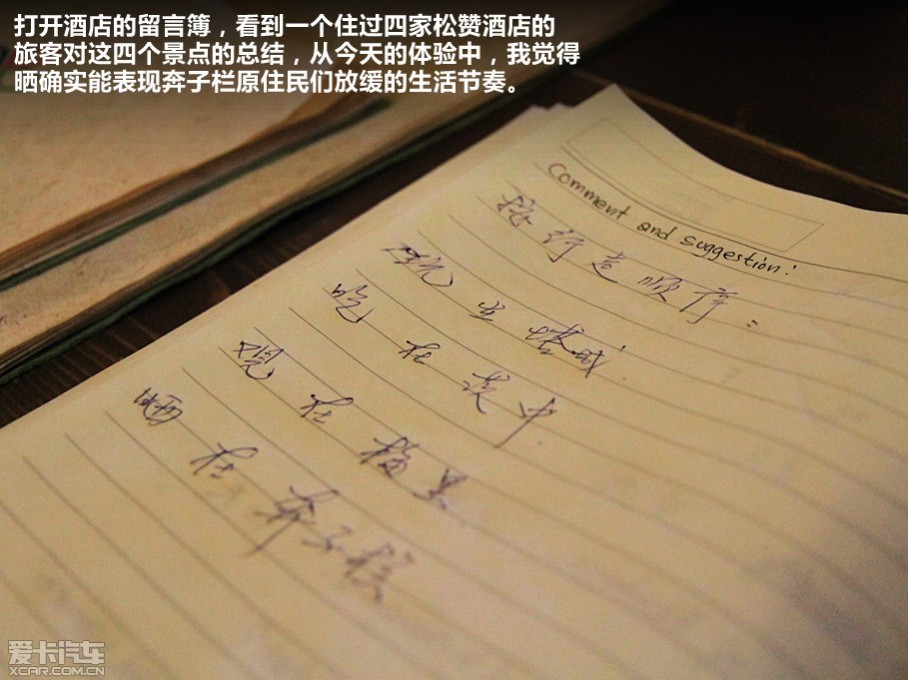 打开酒店的留言簿，看到一个住过四家松赞酒店的
旅客对这四个景点的总结，从今天的体验中，我觉得
晒确实能表现奔子栏原住民们放缓的生活节奏。
Comment and suggestion:
按行走顺序：
玩在塔城
吃在茨中
观在梅里
晒在奔子栏
爱卡汽车
XCAR.COM.CN